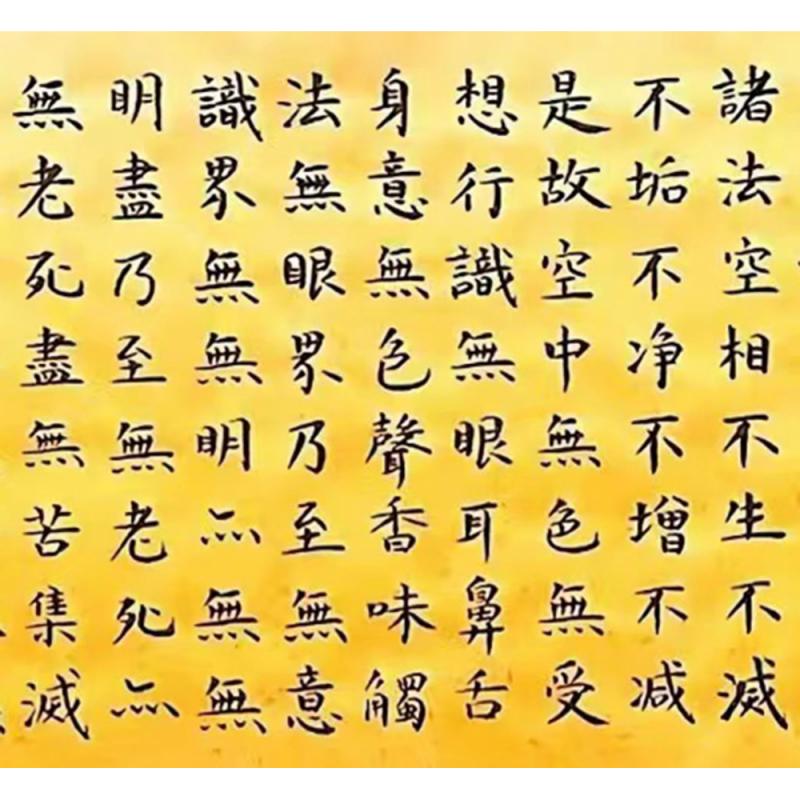 諸法空相不生不滅
不垢不净不增不减
是故空中無色無受
想行識無眼耳鼻舌
身意無色聲香味觸
法無眼界乃至無意
識界無無明亦無無
明盡乃至無老死亦
無老死盡無苦集滅